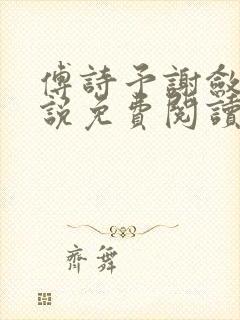 傅詩予謝斂
說免費閱讀
齊舞